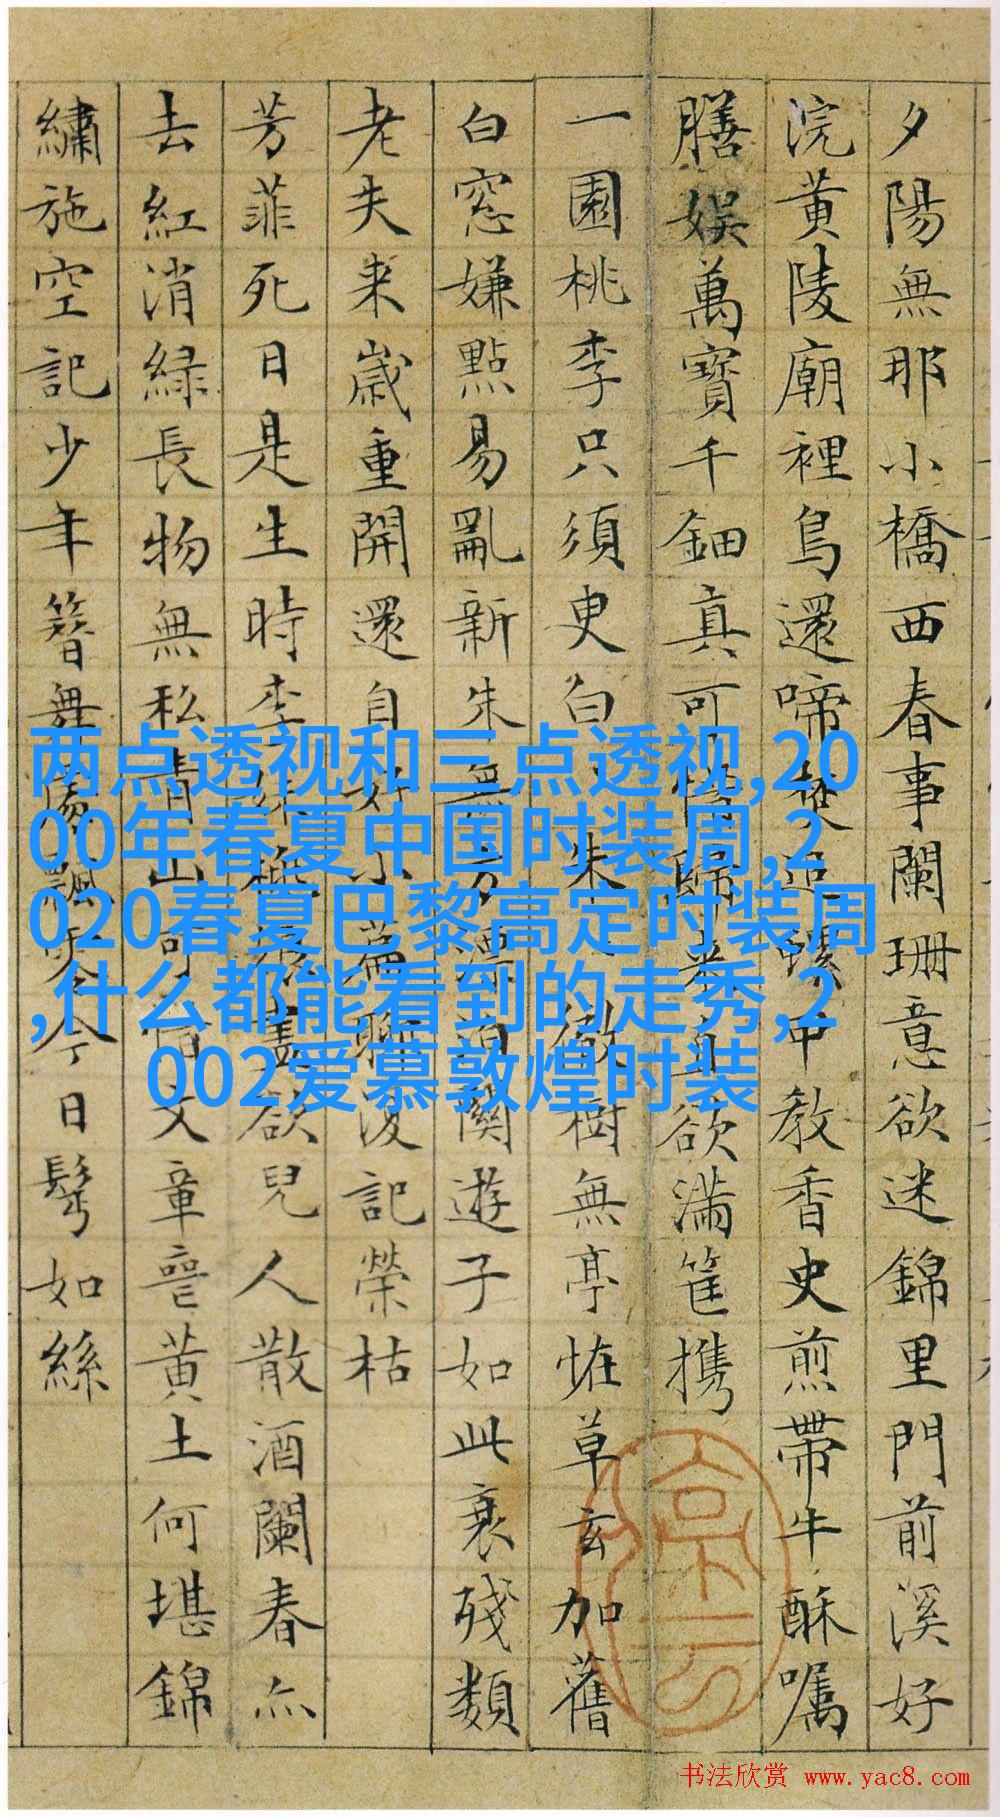 夕陽無那小橋西春事闌珊意欲迷錦里門前溪好
浣黄陵廟裡鳥還啼焚追螺甲教香史煎帶牛酥囑
膳娛萬寶千鈿真可惜歸来直欲滿筐携
一園桃李只須臾白朱徹樹無亭怪草玄加舊
白窓嫌點易亂新朱無方漂泊關遊子如此衰殘類
老夫来歲重開還自好小篇聊復記榮枯
芳菲死日是生時李妹桃娘盡欲兒人散酒闌春亦
去紅消緑長物無私青山可惜文章喪黄土何堪錦
繡施空記少年簪舞處飄零今日鬢如絲
两点透视和三点透视,20
00年春夏中国时装周,2
020春夏巴黎高定时装周
,什么都能看到的走秀,2
002爱慕敦煌时装
书法欣赏 www.yac8.com